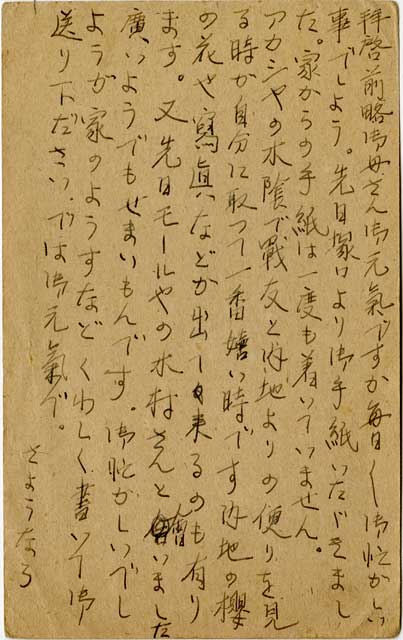 拝啓前略御母さん御元氣ですか毎日〱御忙がしい
事でしよう。先日塚口より御手紙いたゞきまし
た。家からの手紙は一度も着いていません。
アカシヤの木陰で戰友と内地よりの便りを見
る時が自分に取つて一番嬉い時です内地の櫻
の花や寫眞などが出て来るのも有り
ます。又先日モールやの木村さんと會いました
廣いようでもせまいもんです。御忙がしいでし
ようが家のようすなどくわしく書いて御
送り下ださい。では御元氣で。
さようなら